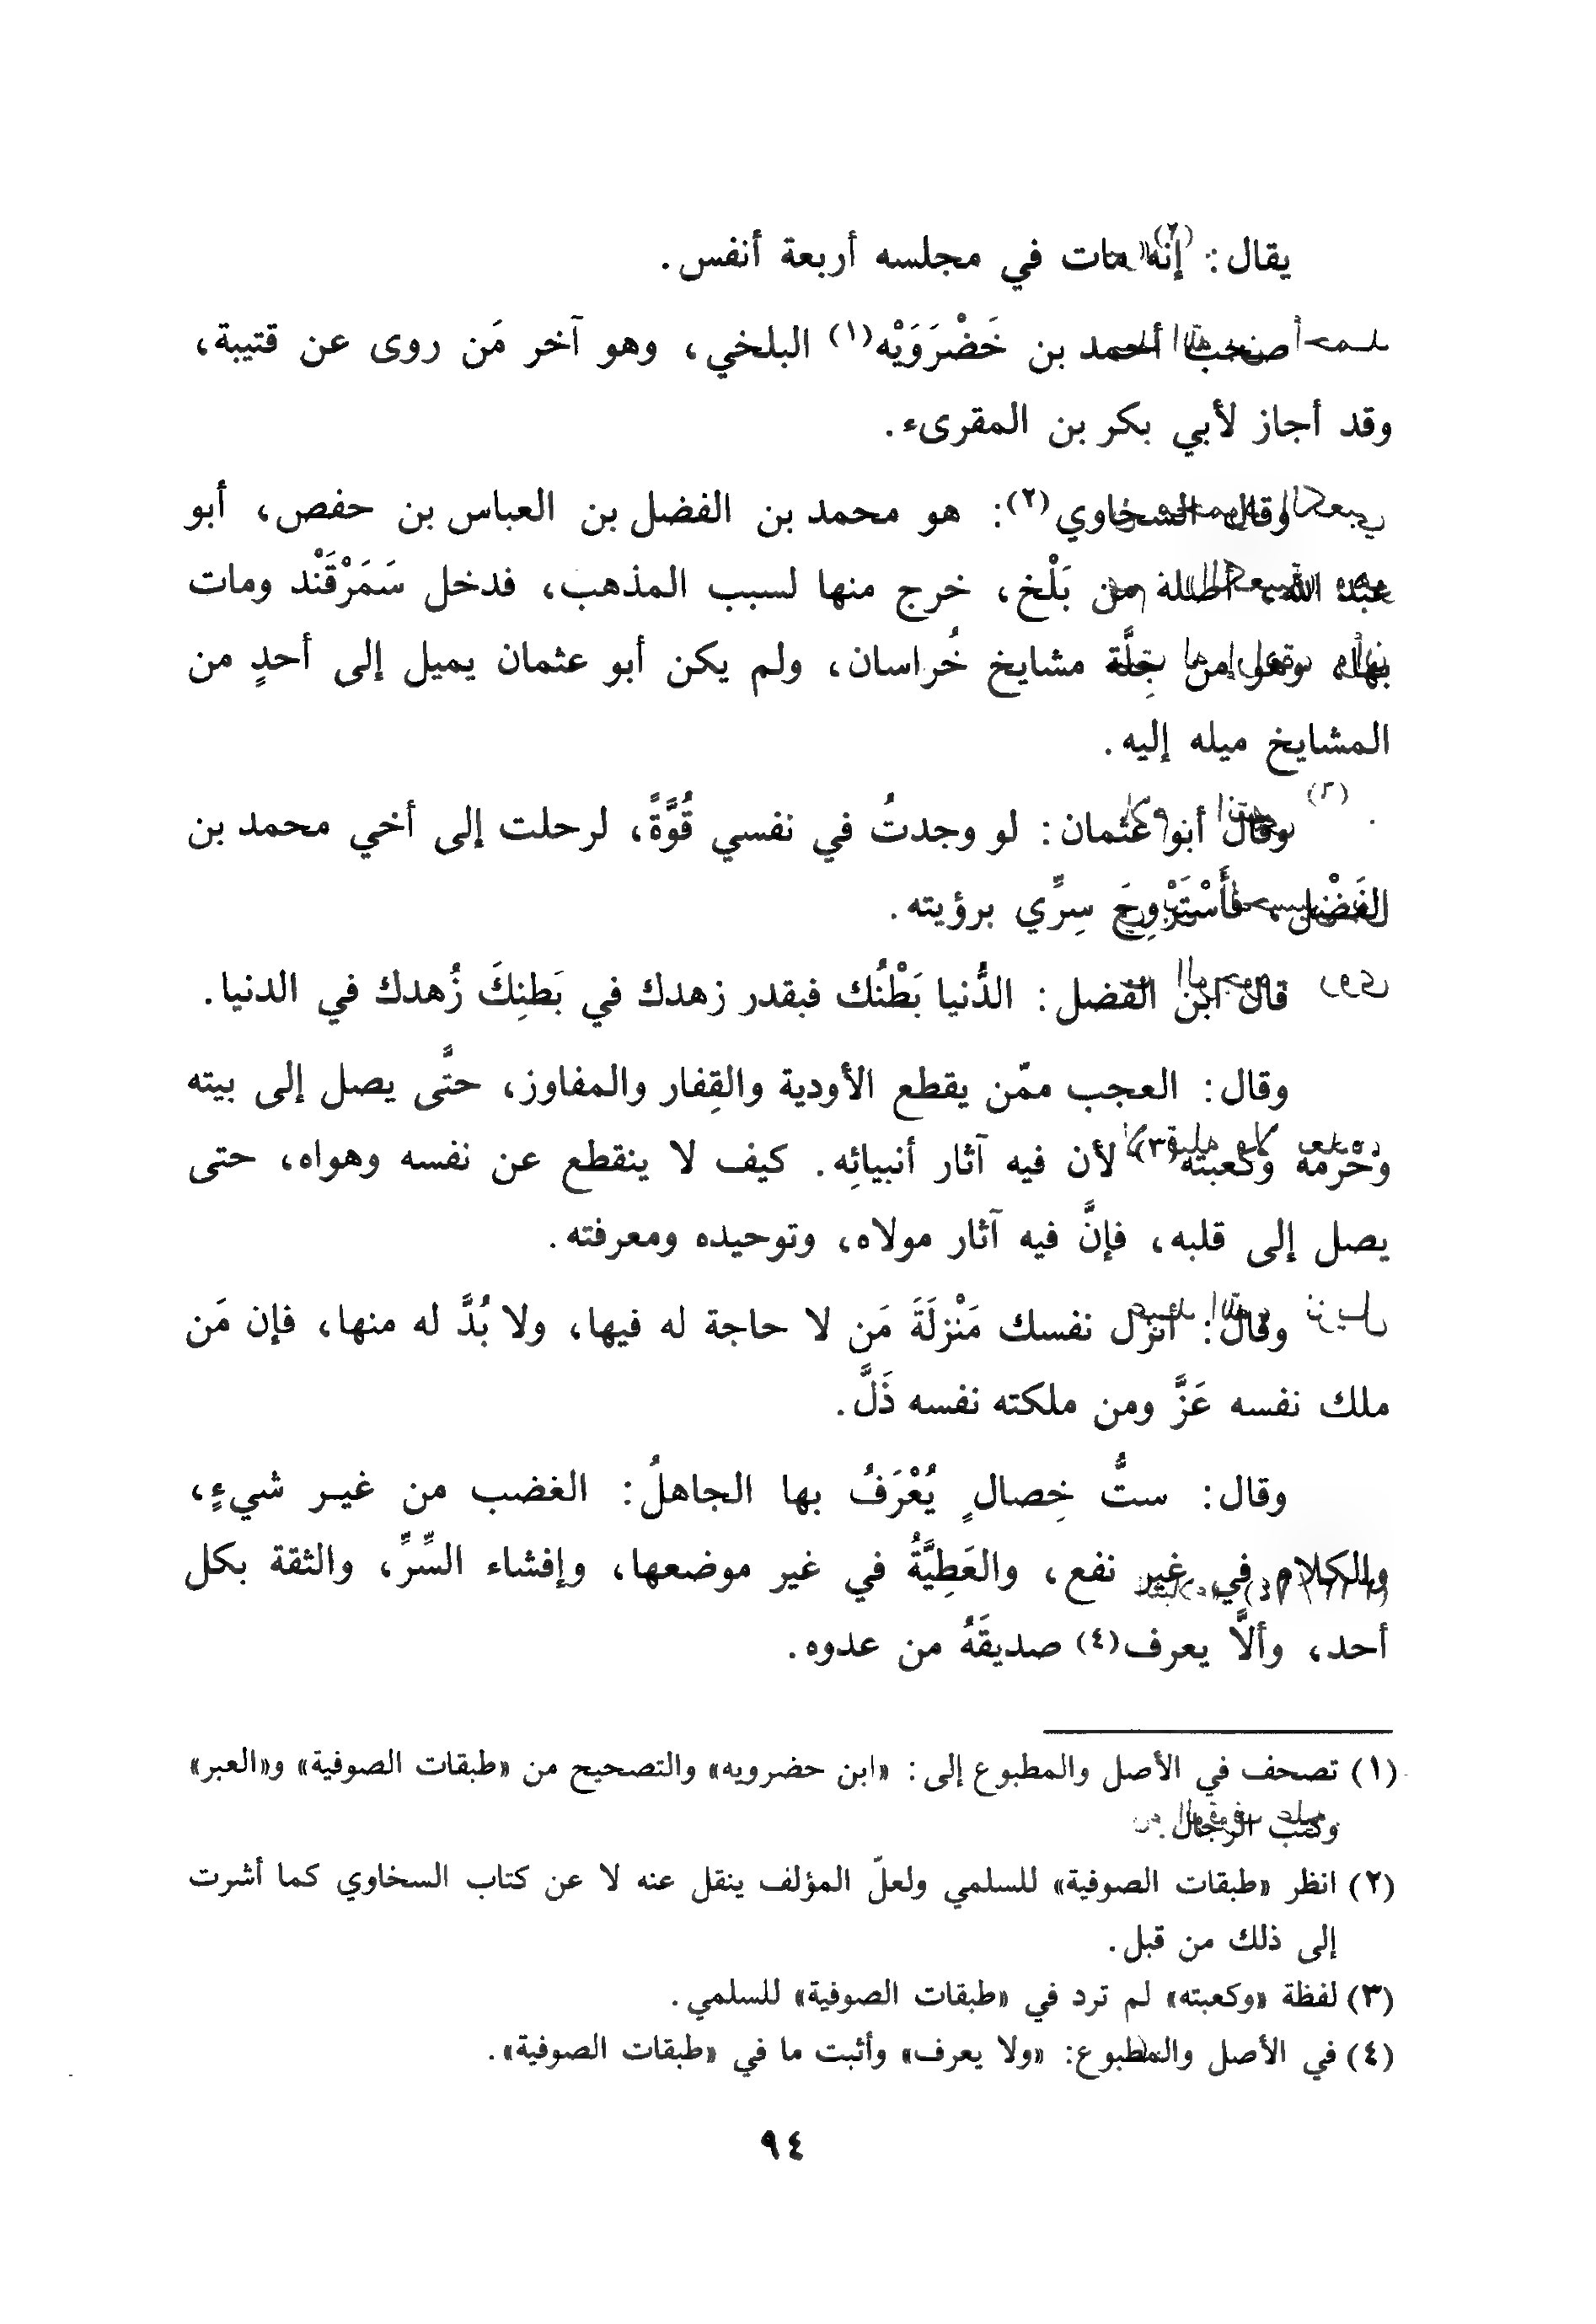 يقال: إنه مات في مجلسه أربعة أنفس.
صحب أحمد بن خَضْرَوَيْه(١) البلخي، وهو آخر مَن روى عن قتيبة،
وقد أجاز لأبي بكر بن المقرىء.
وقال السخاوي(٢): هو محمد بن الفضل بن العباس بن حفص، أبو
عبد الله، أصله من بَلْخ، خرج منها لسبب المذهب، فدخل سَمَرْقَنْد ومات
بها، وهو من جِلَّة مشايخ خُراسان، ولم يكن أبو عثمان يميل إلى أحدٍ من
المشايخ ميله إليه.
وقال أبو عثمان: لو وجدتُ في نفسي قُوَّةً، لرحلت إلى أخي محمد بن
الفَضْل، فأَسْتَرْوِحَ سِرِّي برؤيته.
قال ابن الفضل: الدُّنيا بَطْنُك فبقدر زهدك في بَطنِكَ زُهدك في الدنيا.
وقال: العجب ممّن يقطع الأودية والقِفار والمفاوز، حتَّى يصل إلى بيته
وحَرَمه وكعبته(٣) لأن فيه آثار أنبيائِه. كيف لا ينقطع عن نفسه وهواه، حتى
يصل إلى قلبه، فإنَّ فيه آثار مولاه، وتوحيده ومعرفته.
وقال: أنزل نفسك مَنْزلَةَ مَن لا حاجة له فيها، ولا بُدَّ له منها، فإن مَن
ملك نفسه عَزَّ ومن ملكته نفسه ذَلَّ.
وقال: ستُّ خِصالٍ يُعْرَفُ بها الجاهلُ: الغضب من غيـر شيءٍ،
والكلام في غير نفع، والعَطِيَّةُ في غير موضعها، وإفشاء السِّرِّ، والثقة بكل
أحد، وألَّا يعرف(٤) صديقَهُ من عدوه.
(١) تصحف في الأصل والمطبوع إلى: «ابن حضرويه» والتصحيح من «طبقات الصوفية» و«العبر»
وكتب الرجال.
(٢) انظر «طبقات الصوفية» للسلمي ولعلّ المؤلف ينقل عنه لا عن كتاب السخاوي كما أشرت
إلى ذلك من قبل.
(٣) لفظة «وكعبته» لم ترد في «طبقات الصوفية» للسلمي.
(٤) في الأصل والمطبوع: «ولا يعرف» وأثبت ما في «طبقات الصوفية».
٩٤